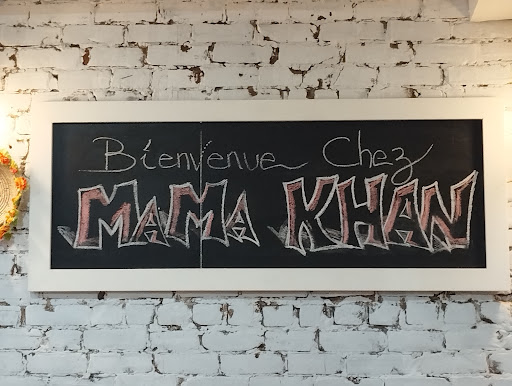 Bienvenue Chez
MAMA KHAN